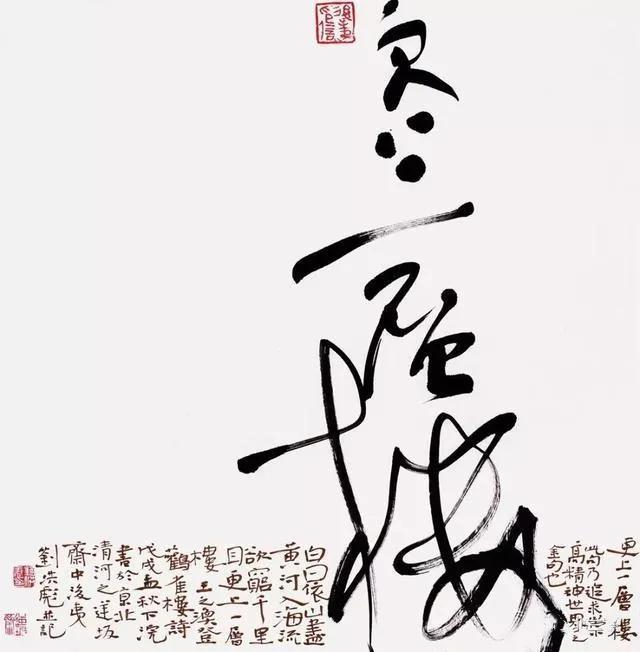 更上一層樓
更上一層樓
乃追求崇
高精神世界之
金句也
白日依山盡
黄河入海流
欲窮千里
目更上一層
樓 王之渙登
鸛雀樓詩
戊戌孟秋下浣
書於京北
清河之坂
齋中後夷
劉洪彪並記